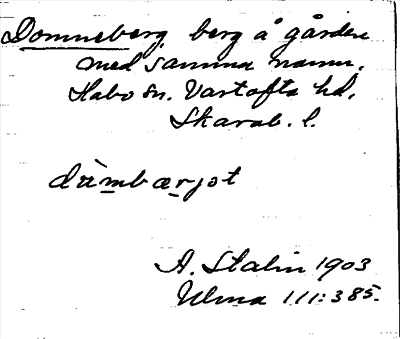 Domneberg, berg å gården
med samma namn.
Habo sn. Vartofta hd.
Skarab. l.
dùmbærjet
A. Stalin 1903
Ulma 111:385.